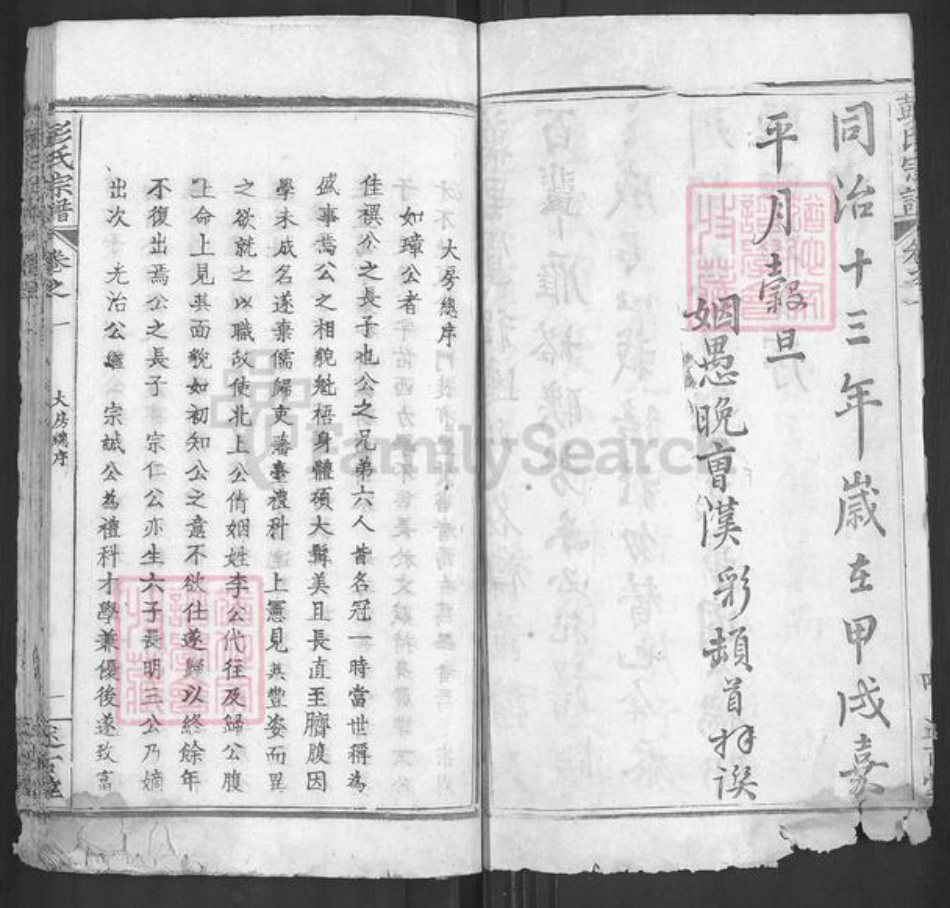 彭氏宗譜
同治十三年歲在甲戌嘉
平月穀旦
姻愚晚曹漢彩頓首拜譔
大房總序
如璋公者
佳禩公之長子也公之兄弟六人皆名冠一時當世稱為
盛事焉公之相貌魁梧身體碩大髯美且長直至臍腹因
學未成名遂棄儒歸吏藩臺禮科上憲見其豐姿而異
之欲就之以職故使北上公倩姻姓李公代往及歸公腹
上命上見其面貌如初知公之意不欲仕遂歸以終餘年
不復出焉公之長子宗仁公亦生六子長明三公乃嫡
出次光治公繼宗誠公為禮科才學兼優後遂致富
彭氏宗譜
卷之一
大房總序
一
述古堂
FamilySearch